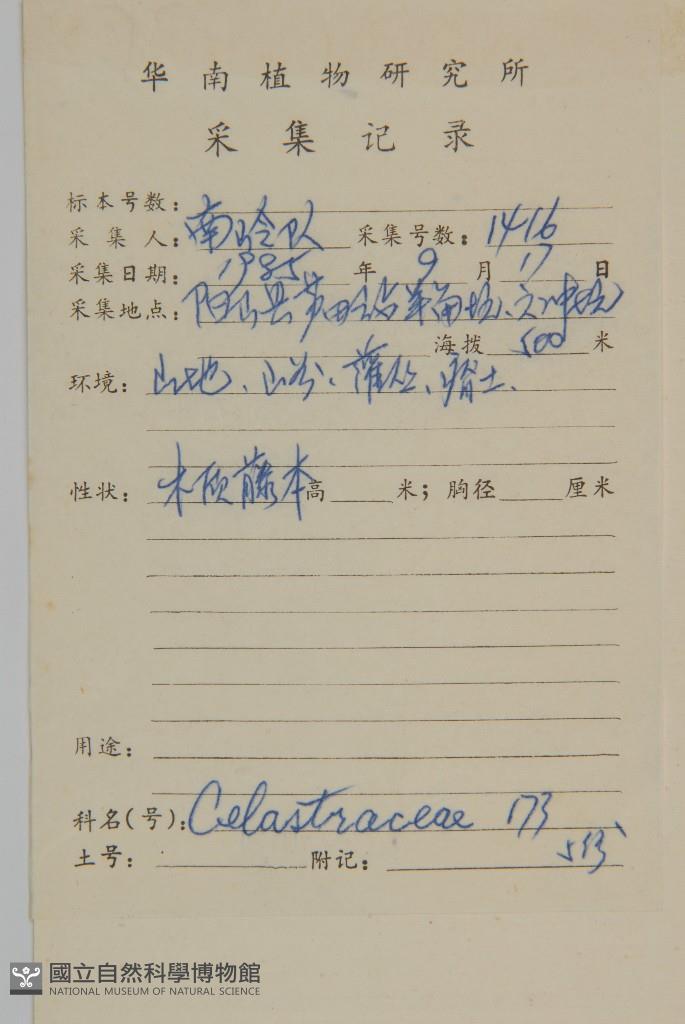 华南植物研究所
采集记录
标本号数:
采集人: 南岭队 采集号数: 1416
采集日期: 1985 年 9 月 17 日
采集地点: 阳山县
海拨 500 米
环境: 山地、山谷、灌丛、瘠土.
性状: 木质藤本 高 米; 胸径 厘米
用途:
科名(号): Celastraceae 173
土号: 附记:
國立自然科學博物館
NATIONAL MUSEUM OF NATURAL SCIENCE